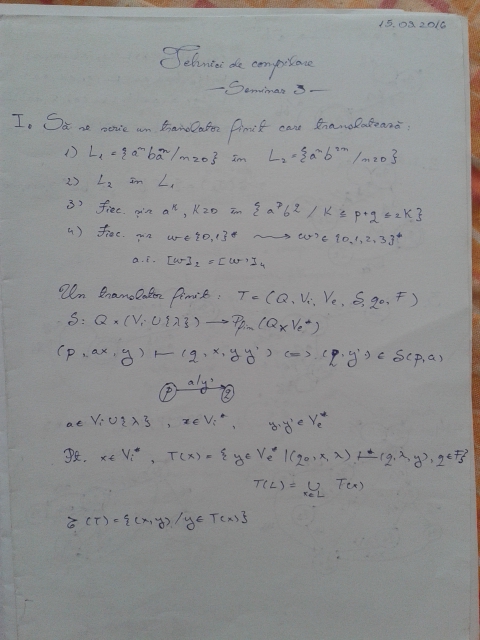 15.03.2016
Tehnici de compilare
- Seminar 3 -
I. Să se scrie un translator finit care translatează:
1) L₁ = {aⁿbaⁿ / n≥0} în L₂ = {aⁿb²ⁿ / n≥0}
2) L₂ în L₁
3) Fiec. șir aᵏ, k≥0 în {aᵖb² / k ≤ p+q ≤ 2k}
4) Fiec. șir w ∈ {0,1}* ⇝ w' ∈ {0,1,2,3}*
a.î. [w]₂ = [w']₄
Un translator finit: T = (Q, Vi, Ve, δ, q₀, F)
δ: Q × (Vi ∪ {λ}) → Pfin(Q × Ve*)
(p, ax, y) ⊢ (q, x, yy') <=> (q, y') ∈ δ(p, a)
p a/y' q
a ∈ Vi ∪ {λ}, x ∈ Vi*, y, y' ∈ Ve*
Pt. x ∈ Vi*, T(x) = {y ∈ Ve* | (q₀, x, λ) ⊢* (q, λ, y), q ∈ F}
T(L) = ∪ x∈L T(x)
ζ(T) = {(x,y) / y ∈ T(x)}